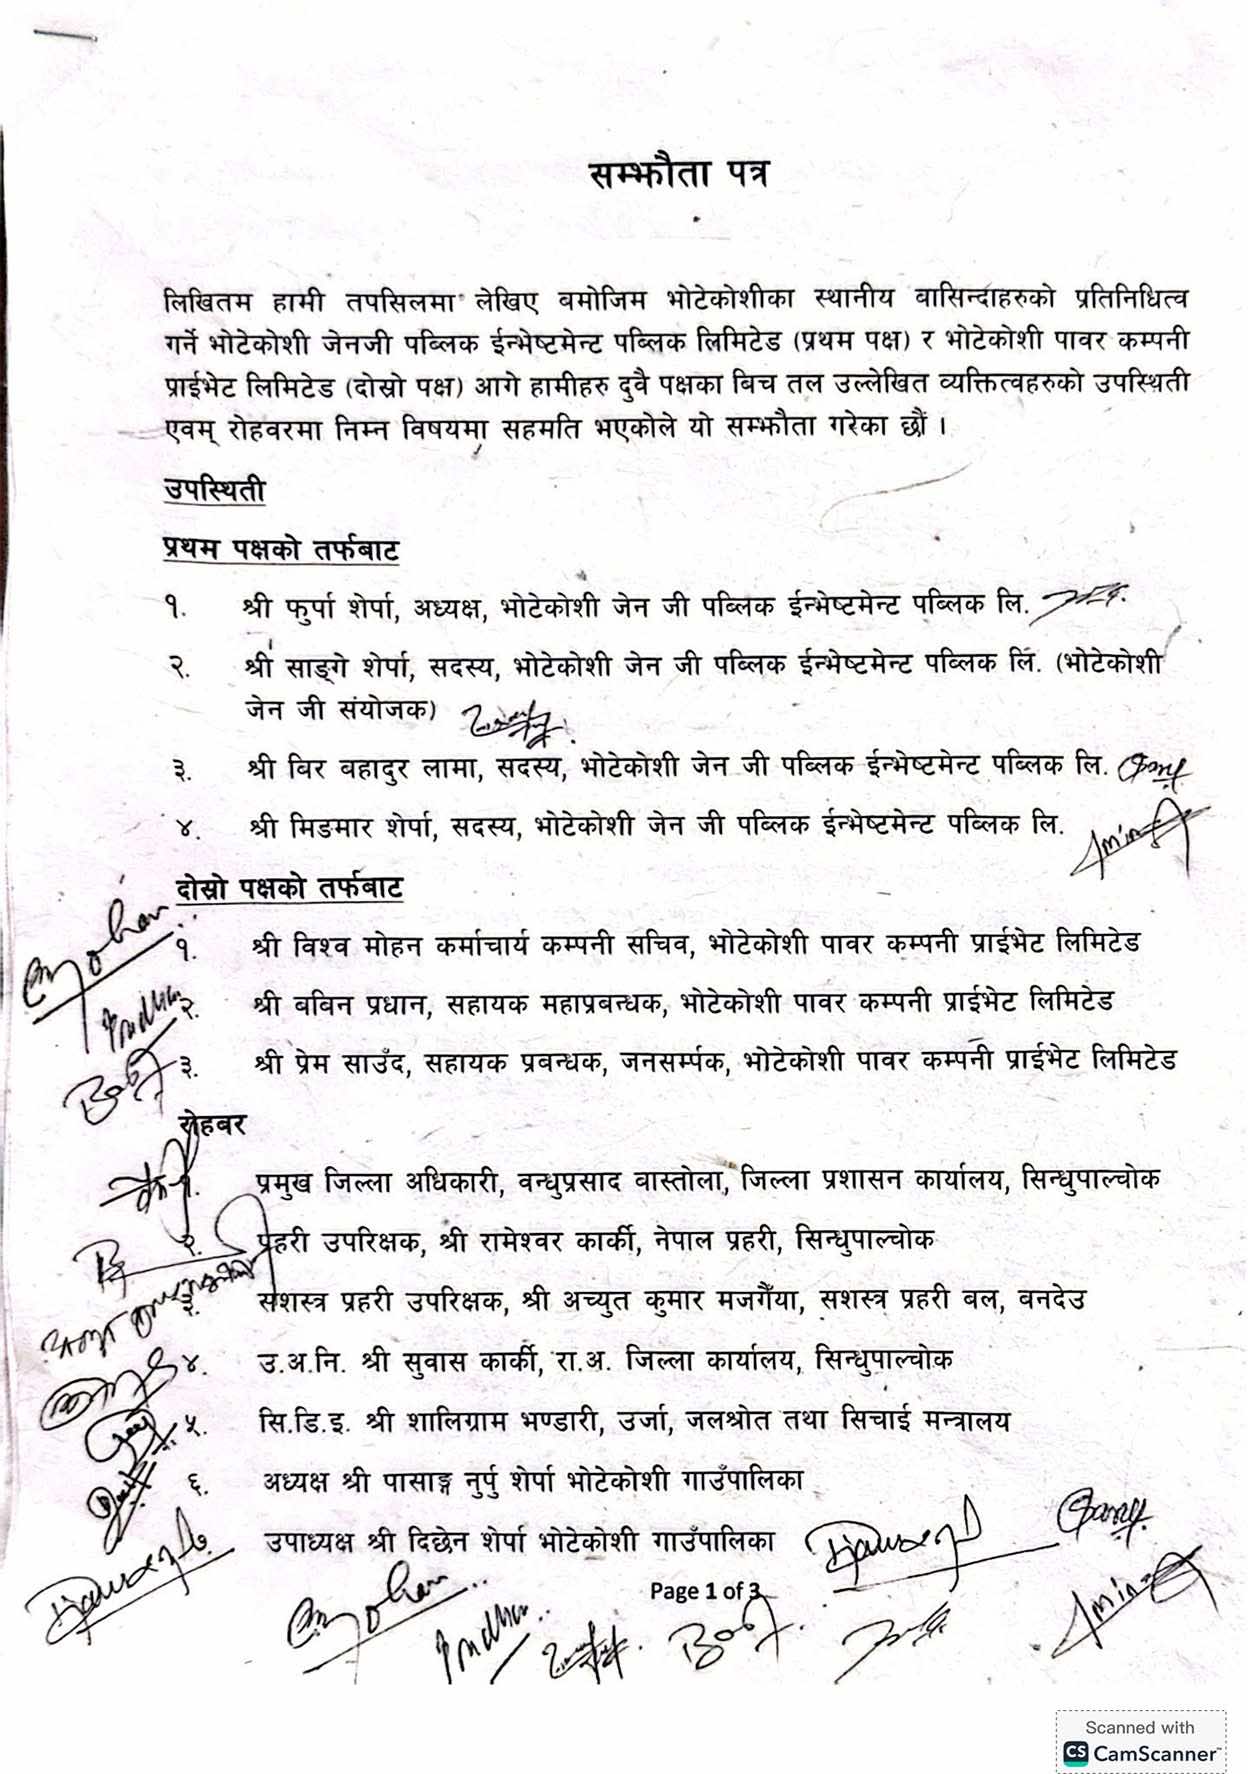 सम्झौता पत्र
लिखितम हामी तपसिलमा लेखिए बमोजिम भोटेकोशीका स्थानीय बासिन्दाहरुको प्रतिनिधित्व
गर्ने भोटेकोशी जेनजी पब्लिक ईन्भेष्टमेन्ट पब्लिक लिमिटेड (प्रथम पक्ष) र भोटेकोशी पावर कम्पनी
प्राईभेट लिमिटेड (दोस्रो पक्ष) आगे हामीहरु दुवै पक्षका बिच तल उल्लेखित व्यक्तित्वहरुको उपस्थिती
एवम् रोहवरमा निम्न विषयमा सहमति भएकोले यो सम्झौता गरेका छौं ।
उपस्थिती
प्रथम पक्षको तर्फबाट
१. श्री फुर्पा शेर्पा, अध्यक्ष, भोटेकोशी जेन जी पब्लिक ईन्भेष्टमेन्ट पब्लिक लि.
२. श्री साङ्गे शेर्पा, सदस्य, भोटेकोशी जेन जी पब्लिक ईन्भेष्टमेन्ट पब्लिक लि. (भोटेकोशी
जेन जी संयोजक)
३. श्री बिर बहादुर लामा, सदस्य, भोटेकोशी जेन जी पब्लिक ईन्भेष्टमेन्ट पब्लिक लि.
४. श्री मिङमार शेर्पा, सदस्य, भोटेकोशी जेन जी पब्लिक ईन्भेष्टमेन्ट पब्लिक लि.
दोस्रो पक्षको तर्फबाट
१. श्री विश्व मोहन कर्माचार्य कम्पनी सचिव, भोटेकोशी पावर कम्पनी प्राईभेट लिमिटेड
२. श्री बबिन प्रधान, सहायक महाप्रबन्धक, भोटेकोशी पावर कम्पनी प्राईभेट लिमिटेड
३. श्री प्रेम साउँद, सहायक प्रबन्धक, जनसर्म्पक, भोटेकोशी पावर कम्पनी प्राईभेट लिमिटेड
रोहबर
१. प्रमुख जिल्ला अधिकारी, वन्धुप्रसाद वास्तोला, जिल्ला प्रशासन कार्यालय, सिन्धुपाल्चोक
२. प्रहरी उपरिक्षक, श्री रामेश्वर कार्की, नेपाल प्रहरी, सिन्धुपाल्चोक
३. सशस्त्र प्रहरी उपरिक्षक, श्री अच्युत कुमार मजगैँया, सशस्त्र प्रहरी बल, वनदेउ
४. उ.अ.नि. श्री सुवास कार्की, रा.अ. जिल्ला कार्यालय, सिन्धुपाल्चोक
५. सि.डि.इ. श्री शालिग्राम भण्डारी, उर्जा, जलश्रोत तथा सिचाई मन्त्रालय
६. अध्यक्ष श्री पासाङ्ग नुर्पु शेर्पा भोटेकोशी गाउँपालिका
७. उपाध्यक्ष श्री दिछेन शेर्पा भोटेकोशी गाउँपालिका
Page 1 of 3
Scanned with
CS CamScanner